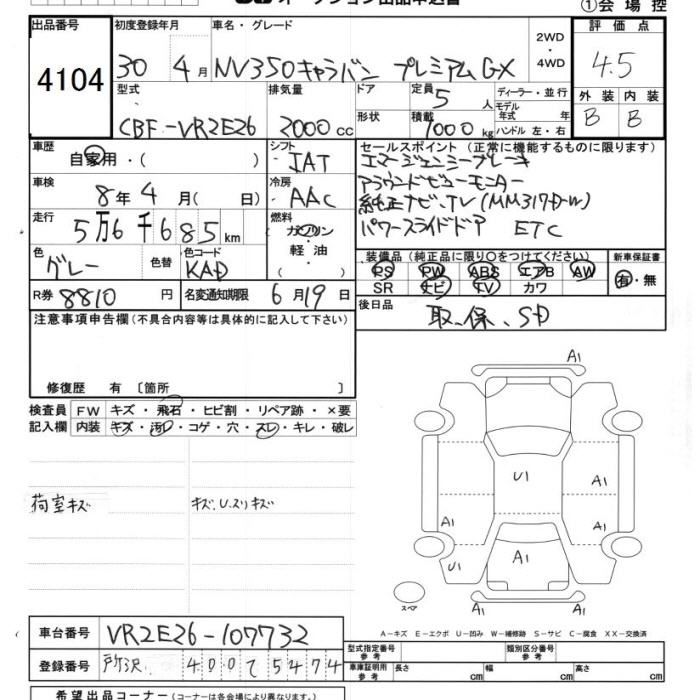 ①会場控
出品番号 初度登録年月 車名・グレード 2WD・4WD 評価点
4104 30年 4月 NV350キャラバン プレミアムGX 4.5
型式 排気量 ドア 定員 5人 ディーラー・並行 外装 内装
CBF-VR2E26 2000cc 形状 積載 1000kg モデル年式 年 ハンドル 左・右 B B
車歴 自家用・( ) シフト IAT セールスポイント(正常に機能するものに限ります)
エマージェンシーブレーキ
車検 8年 4月( 日) 冷房 AAC アラウンドビューモニター
純正ナビ、TV(MM317D-W)
走行 5万6千685km 燃料 ガソリン・軽油・( ) パワースライドドア ETC
色 グレー 色替 色コード KAD 装備品(純正品に限り○をつけてください) 新車保証書
PS PW ABS エアB AW 有・無
SR ナビ TV カワ
R券 8810円 名変通知期限 6月19日 後日品
取、保、SD
注意事項申告欄(不具合内容等は具体的に記入して下さい)
修復歴 有 [箇所 ]
検査員 FW キズ・飛石・ヒビ割・リペア跡・×要
記入欄 内装 キズ・汚れ・コゲ・穴・スレ・キレ・破レ
荷室キズ キズ、U、スリキズ
A1
U1 A1
A1 A1
U1 A1 A1
A1
スペア A1
A-キズ E-エクボ U-凹み W-補修跡 S-サビ C-腐食 XX-交換済
車台番号 VR2E26-107732
型式指定番号 類別区分番号
登録番号 所沢 400 て 5474
車庫証明用参考 長さ cm 幅 cm 高さ cm
希望出品コーナー(コーナーは各会場により異なります。)